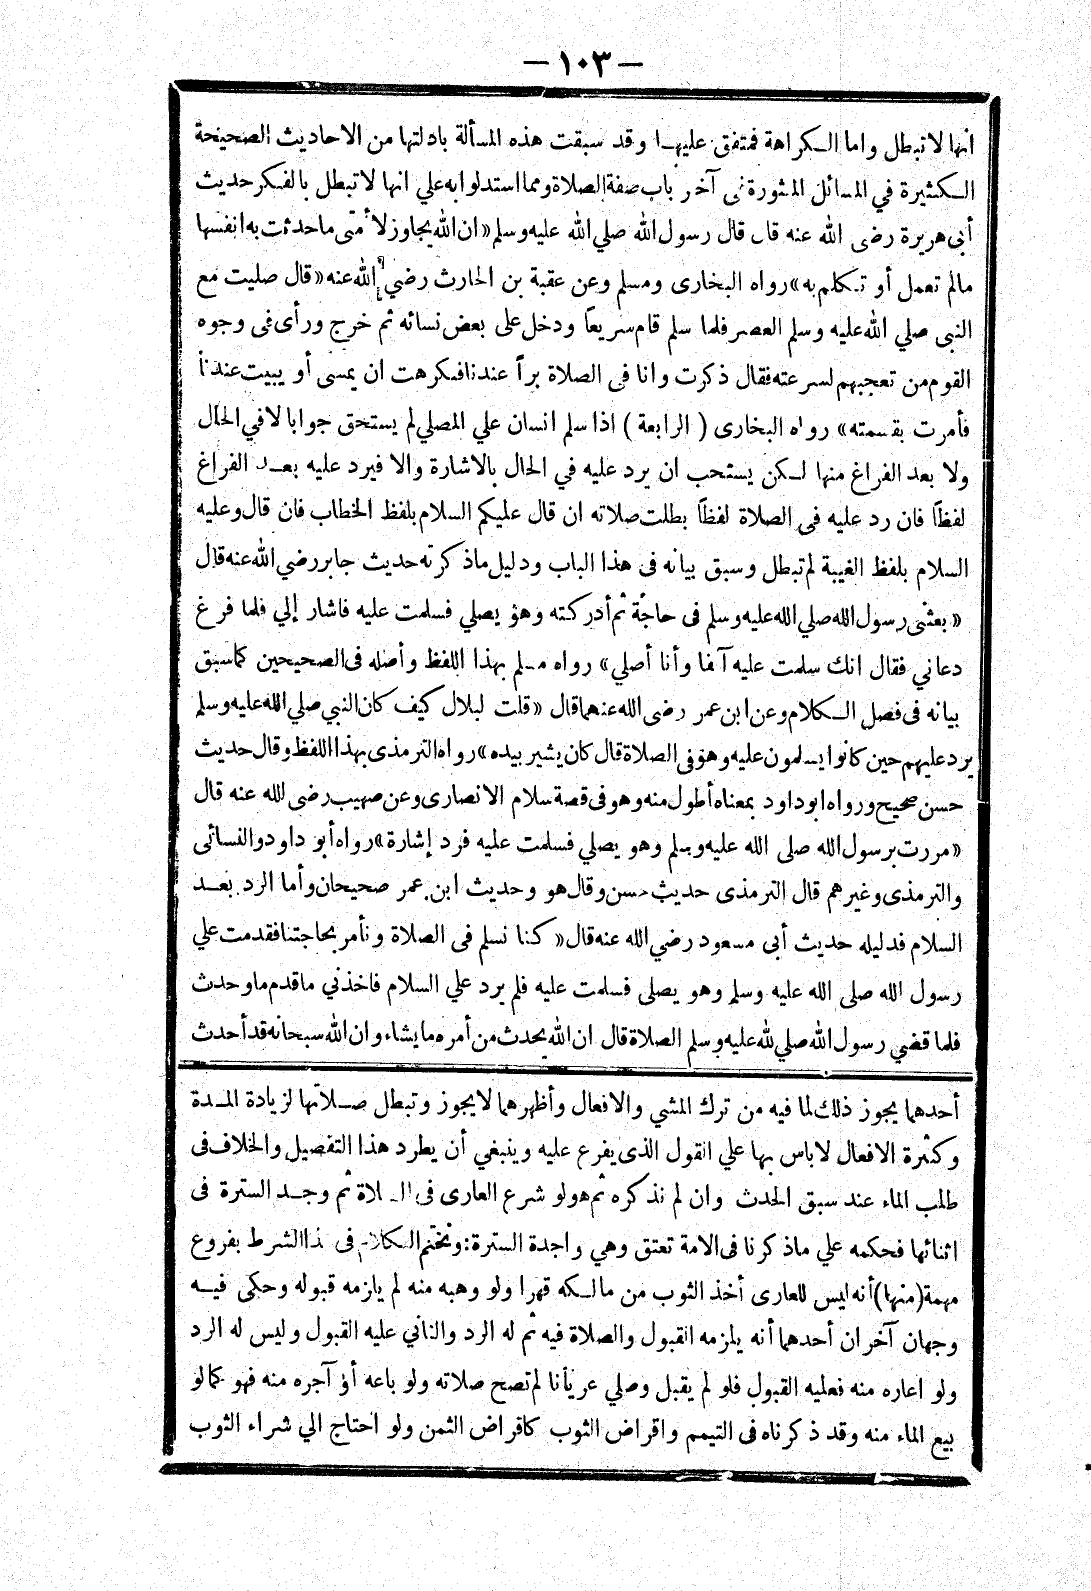 — ١٠٣ —
انها لا تبطل واما الكراهة فمتفق عليها وقد سبقت هذه المسألة بادلتها من الاحاديث الصحيحة
الكثيرة في المسائل المنثورة في آخر باب صفة الصلاة ومما استدلوا به علي انها لا تبطل بالفكر حديث
أبى هريرة رضى الله عنه قال قال رسول الله صلي الله عليه وسلم « ان الله يجاوز لأمتى ما حدثت به انفسها
مالم تعمل أو تكلم به » رواه البخارى ومسلم وعن عقبة بن الحارث رضي الله عنه « قال صليت مع
النبى صلي الله عليه وسلم العصر فلما سلم قام سريعاً ودخل على بعض نسائه ثم خرج ورأى فى وجوه
القوم من تعجبهم لسرعته فقال ذكرت وانا فى الصلاة براً عندنا فكرهت ان يمسى أو يبيت عندنا
فأمرت بقسمته » رواه البخارى ( الرابعة ) اذا سلم انسان علي المصلي لم يستحق جوابا لا في الحال
ولا بعد الفراغ منها لكن يستحب ان يرد عليه في الحال بالاشارة والا فيرد عليه بعد الفراغ
لفظاً فان رد عليه فى الصلاة لفظاً بطلت صلاته ان قال عليكم السلام بلفظ الخطاب فان قال وعليه
السلام بلفظ الغيبة لم تبطل وسبق بيانه فى هذا الباب ودليل ماذكرته حديث جابر رضي الله عنه قال
« بعثنى رسول الله صلي الله عليه وسلم فى حاجة ثم أدركته وهو يصلي فسلمت عليه فاشار إلي فلما فرغ
دعاني فقال انك سلمت عليه آنفا وأنا أصلي » رواه مسلم بهذا اللفظ وأصله فى الصحيحين كما سبق
بيانه فى فصل الكلام وعن ابن عمر رضى الله عنهما قال « قلت لبلال كيف كان النبي صلي الله عليه وسلم
يرد عليهم حين كانوا يسلمون عليه وهو فى الصلاة قال كان يشير بيده » رواه الترمذى بهذا اللفظ وقال حديث
حسن صحيح ورواه ابو داود بمعناه أطول منه وهو فى قصة سلام الانصارى وعن صهيب رضى الله عنه قال
« مررت برسول الله صلى الله عليه وسلم وهو يصلي فسلمت عليه فرد إشارة » رواه أبو داود والنسائى
والترمذى وغيرهم قال الترمذى حديث حسن وقال هو وحديث ابن عمر صحيحان وأما الرد بعد
السلام فدليله حديث أبى مسعود رضي الله عنه قال « كنا نسلم فى الصلاة ونأمر بحاجتنا فقدمت علي
رسول الله صلى الله عليه وسلم وهو يصلى فسلمت عليه فلم يرد علي السلام فاخذني ماقدم وما حدث
فلما قضي رسول الله صلي الله عليه وسلم الصلاة قال ان الله يحدث من أمره مايشاء وان الله سبحانه قد أحدث
أحدهما يجوز ذلك لما فيه من ترك المشي والافعال وأظهرهما لا يجوز وتبطل صلاتها لزيادة المدة
وكثرة الافعال لا باس بها علي القول الذى يفرع عليه وينبغي أن يطرد هذا التفصيل والخلاف فى
طلب الماء عند سبق الحدث وان لم نذكره ثم هو لو شرع العارى فى الصلاة ثم وجد السترة فى
اثنائها فحكمه علي ماذكرنا فى الامة تعتق وهي واجدة السترة : ونختم الكلام فى هذا الشرط بفروع
مهمة ( منها ) أنه ليس للعارى أخذ الثوب من مالكه قهرا ولو وهبه منه لم يلزمه قبوله وحكى فيه
وجهان آخران أحدهما أنه يلزمه القبول والصلاة فيه ثم له الرد والثاني عليه القبول وليس له الرد
ولو اعاره منه فعليه القبول فلو لم يقبل وصلي عريانا لم تصح صلاته ولو باعه أو آجره منه فهو كما لو
بيع الماء منه وقد ذكرناه فى التيمم واقراض الثوب كاقراض الثمن ولو احتاج الي شراء الثوب